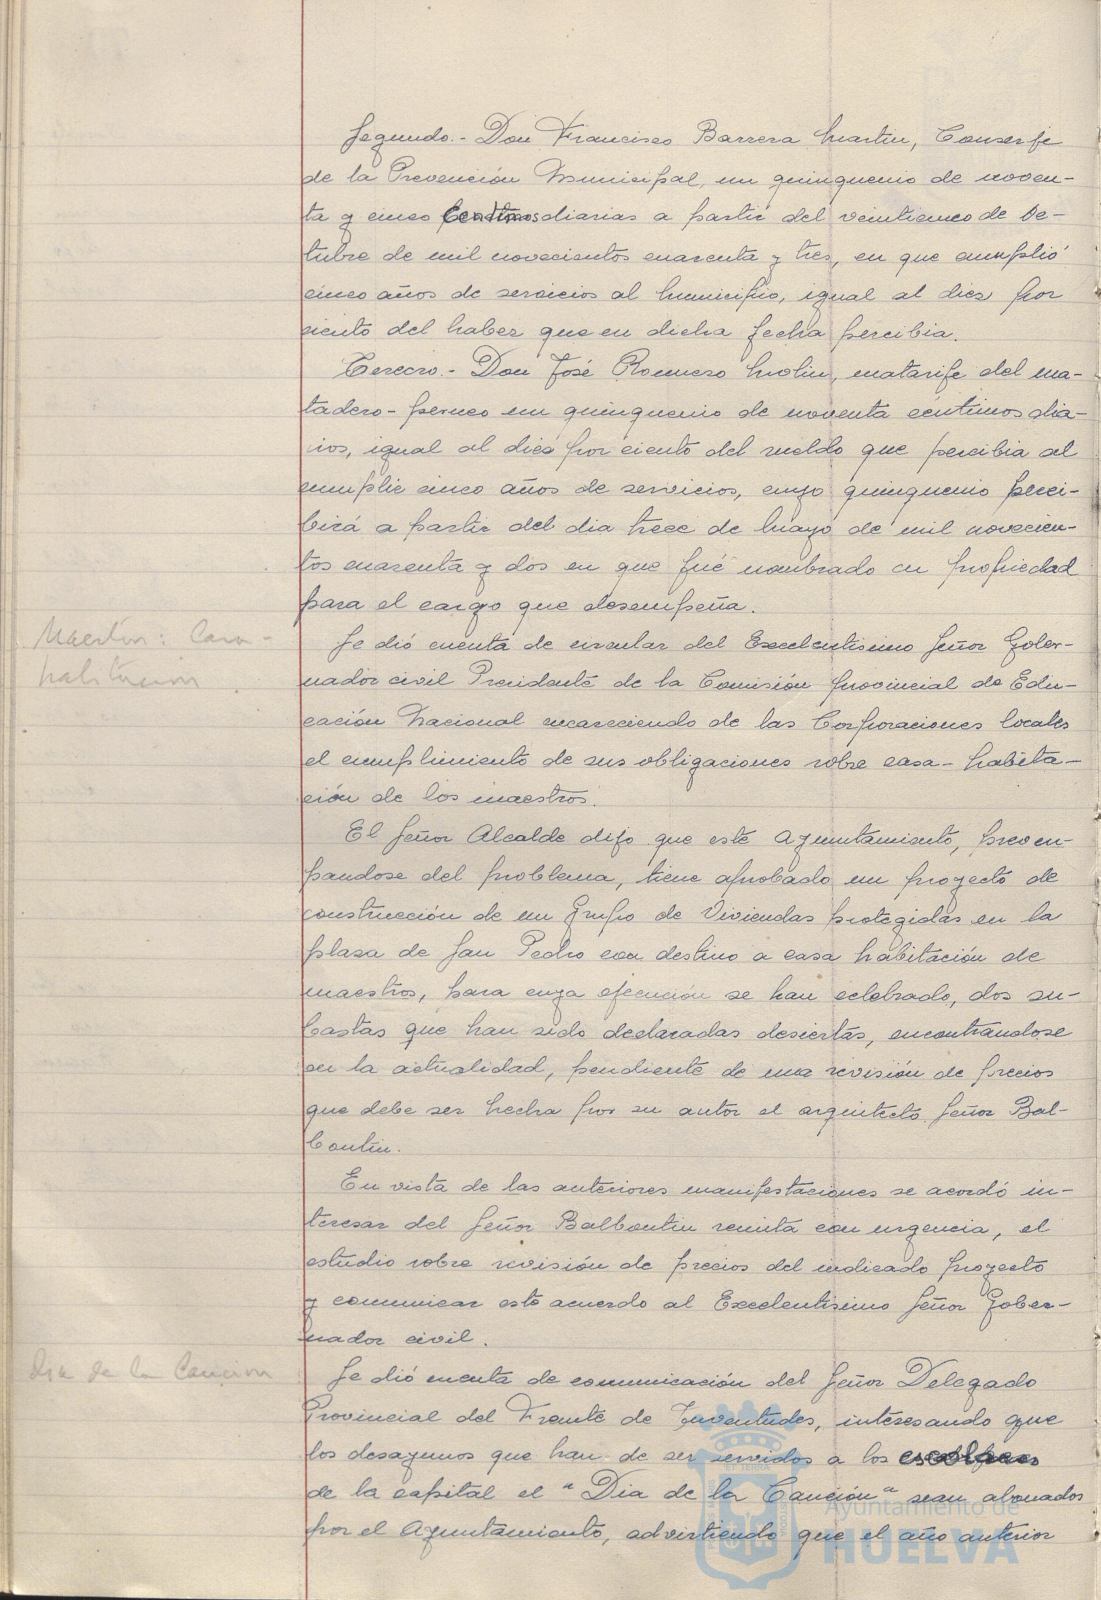 Segundo.- Don Francisco Barrera Martin, Conserje
de la Prevención Municipal, un quinquenio de noven-
ta y cinco centimos diarias a partir del veinticinco de Oc-
tubre de mil novecientos cuarenta y tres, en que cumplió
cinco años de servicios al Municipio, igual al diez por
ciento del haber que en dicha fecha percibia.
Tercero.- Don José Romero Molin, matarife del ma-
tadero- perneo un quinquenio de noventa céntimos dia-
rios, igual al diez por ciento del sueldo que percibia al
cumplir cinco años de servicios, cuyo quinquenio perci-
birá a partir del dia trece de Mayo de mil novecien-
tos cuarenta y dos en que fué nombrado en propiedad
para el cargo que desempeña.
Maestros: Casa-
habitacion
Se dió cuenta de circular del Excelentisimo Señor Gober-
nador civil Presidente de la Comisión provincial de Edu-
cación Nacional encareciendo de las Corporaciones locales
el cumplimiento de sus obligaciones sobre casa-habita-
ción de los maestros.
El Señor Alcalde dijo que este Ayuntamiento, preocu-
pandose del problema, tiene aprobado un proyecto de
construcción de un Grupo de Viviendas protegidas en la
plaza de San Pedro con destino a casa habitación de
maestros, para cuya ejecución se han celebrado, dos su-
bastas que han sido declaradas desiertas, encontrandose
en la actualidad, pendiente de una revisión de precios
que debe ser hecha por su autor el arquitecto Señor Bal-
bontin.
En vista de las anteriores manifestaciones se acordó in-
teresar del Señor Balbontin remita con urgencia, el
estudio sobre revisión de precios del indicado proyecto
y comunicar este acuerdo al Excelentisimo Señor Gober-
nador civil.
Dia de la Cancion
Se dió cuenta de comunicación del Señor Delegado
Provincial del Frente de Juventudes, interesando que
los desayunos que han de ser servidos a los escolares
de la capital el "Dia de la Canción" sean abonados
por el Ayuntamiento, advirtiendo que el año anterior
Ayuntamiento de
HUELVA